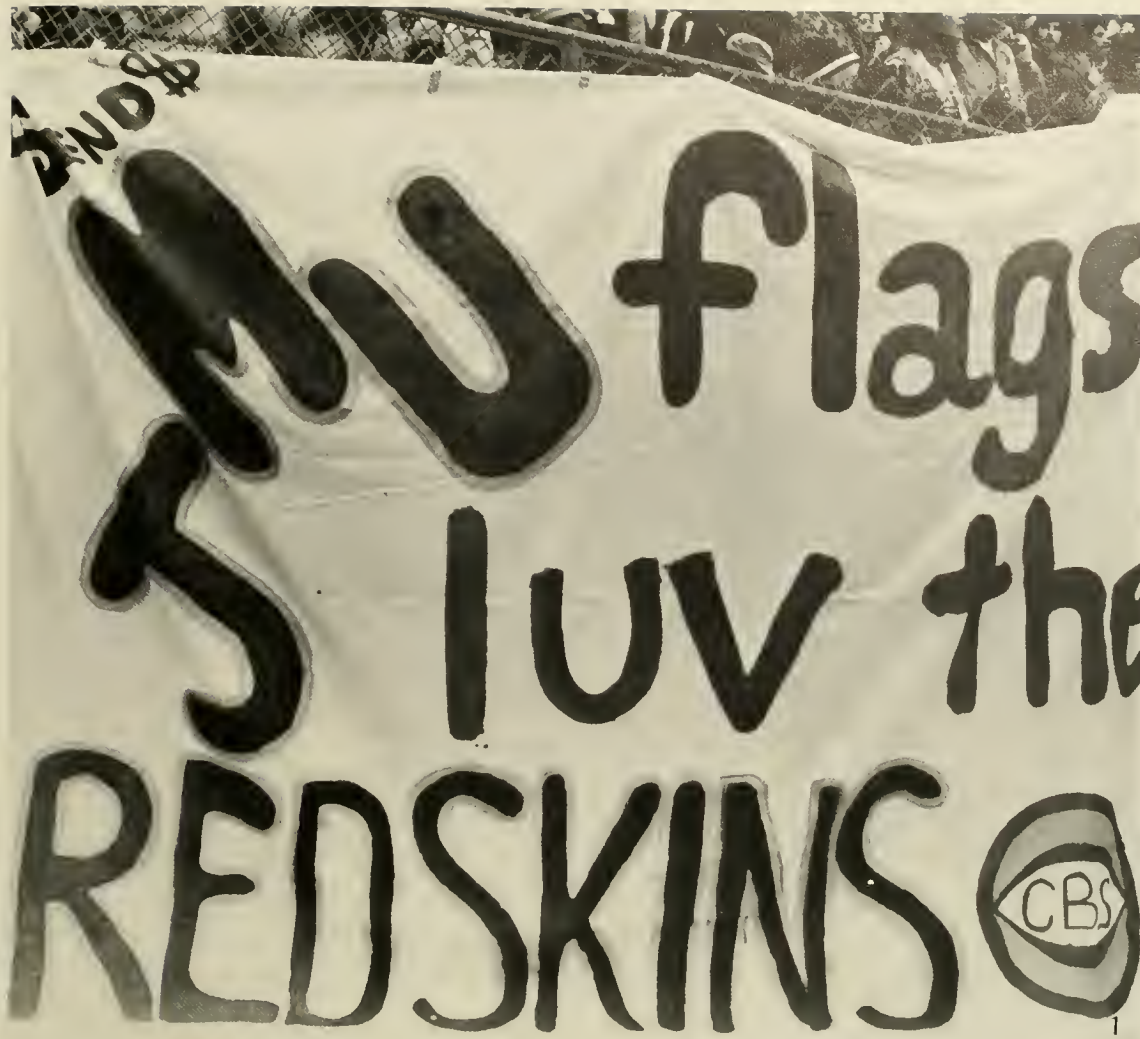 JMU flags
luv the
REDSKINS CBS
1